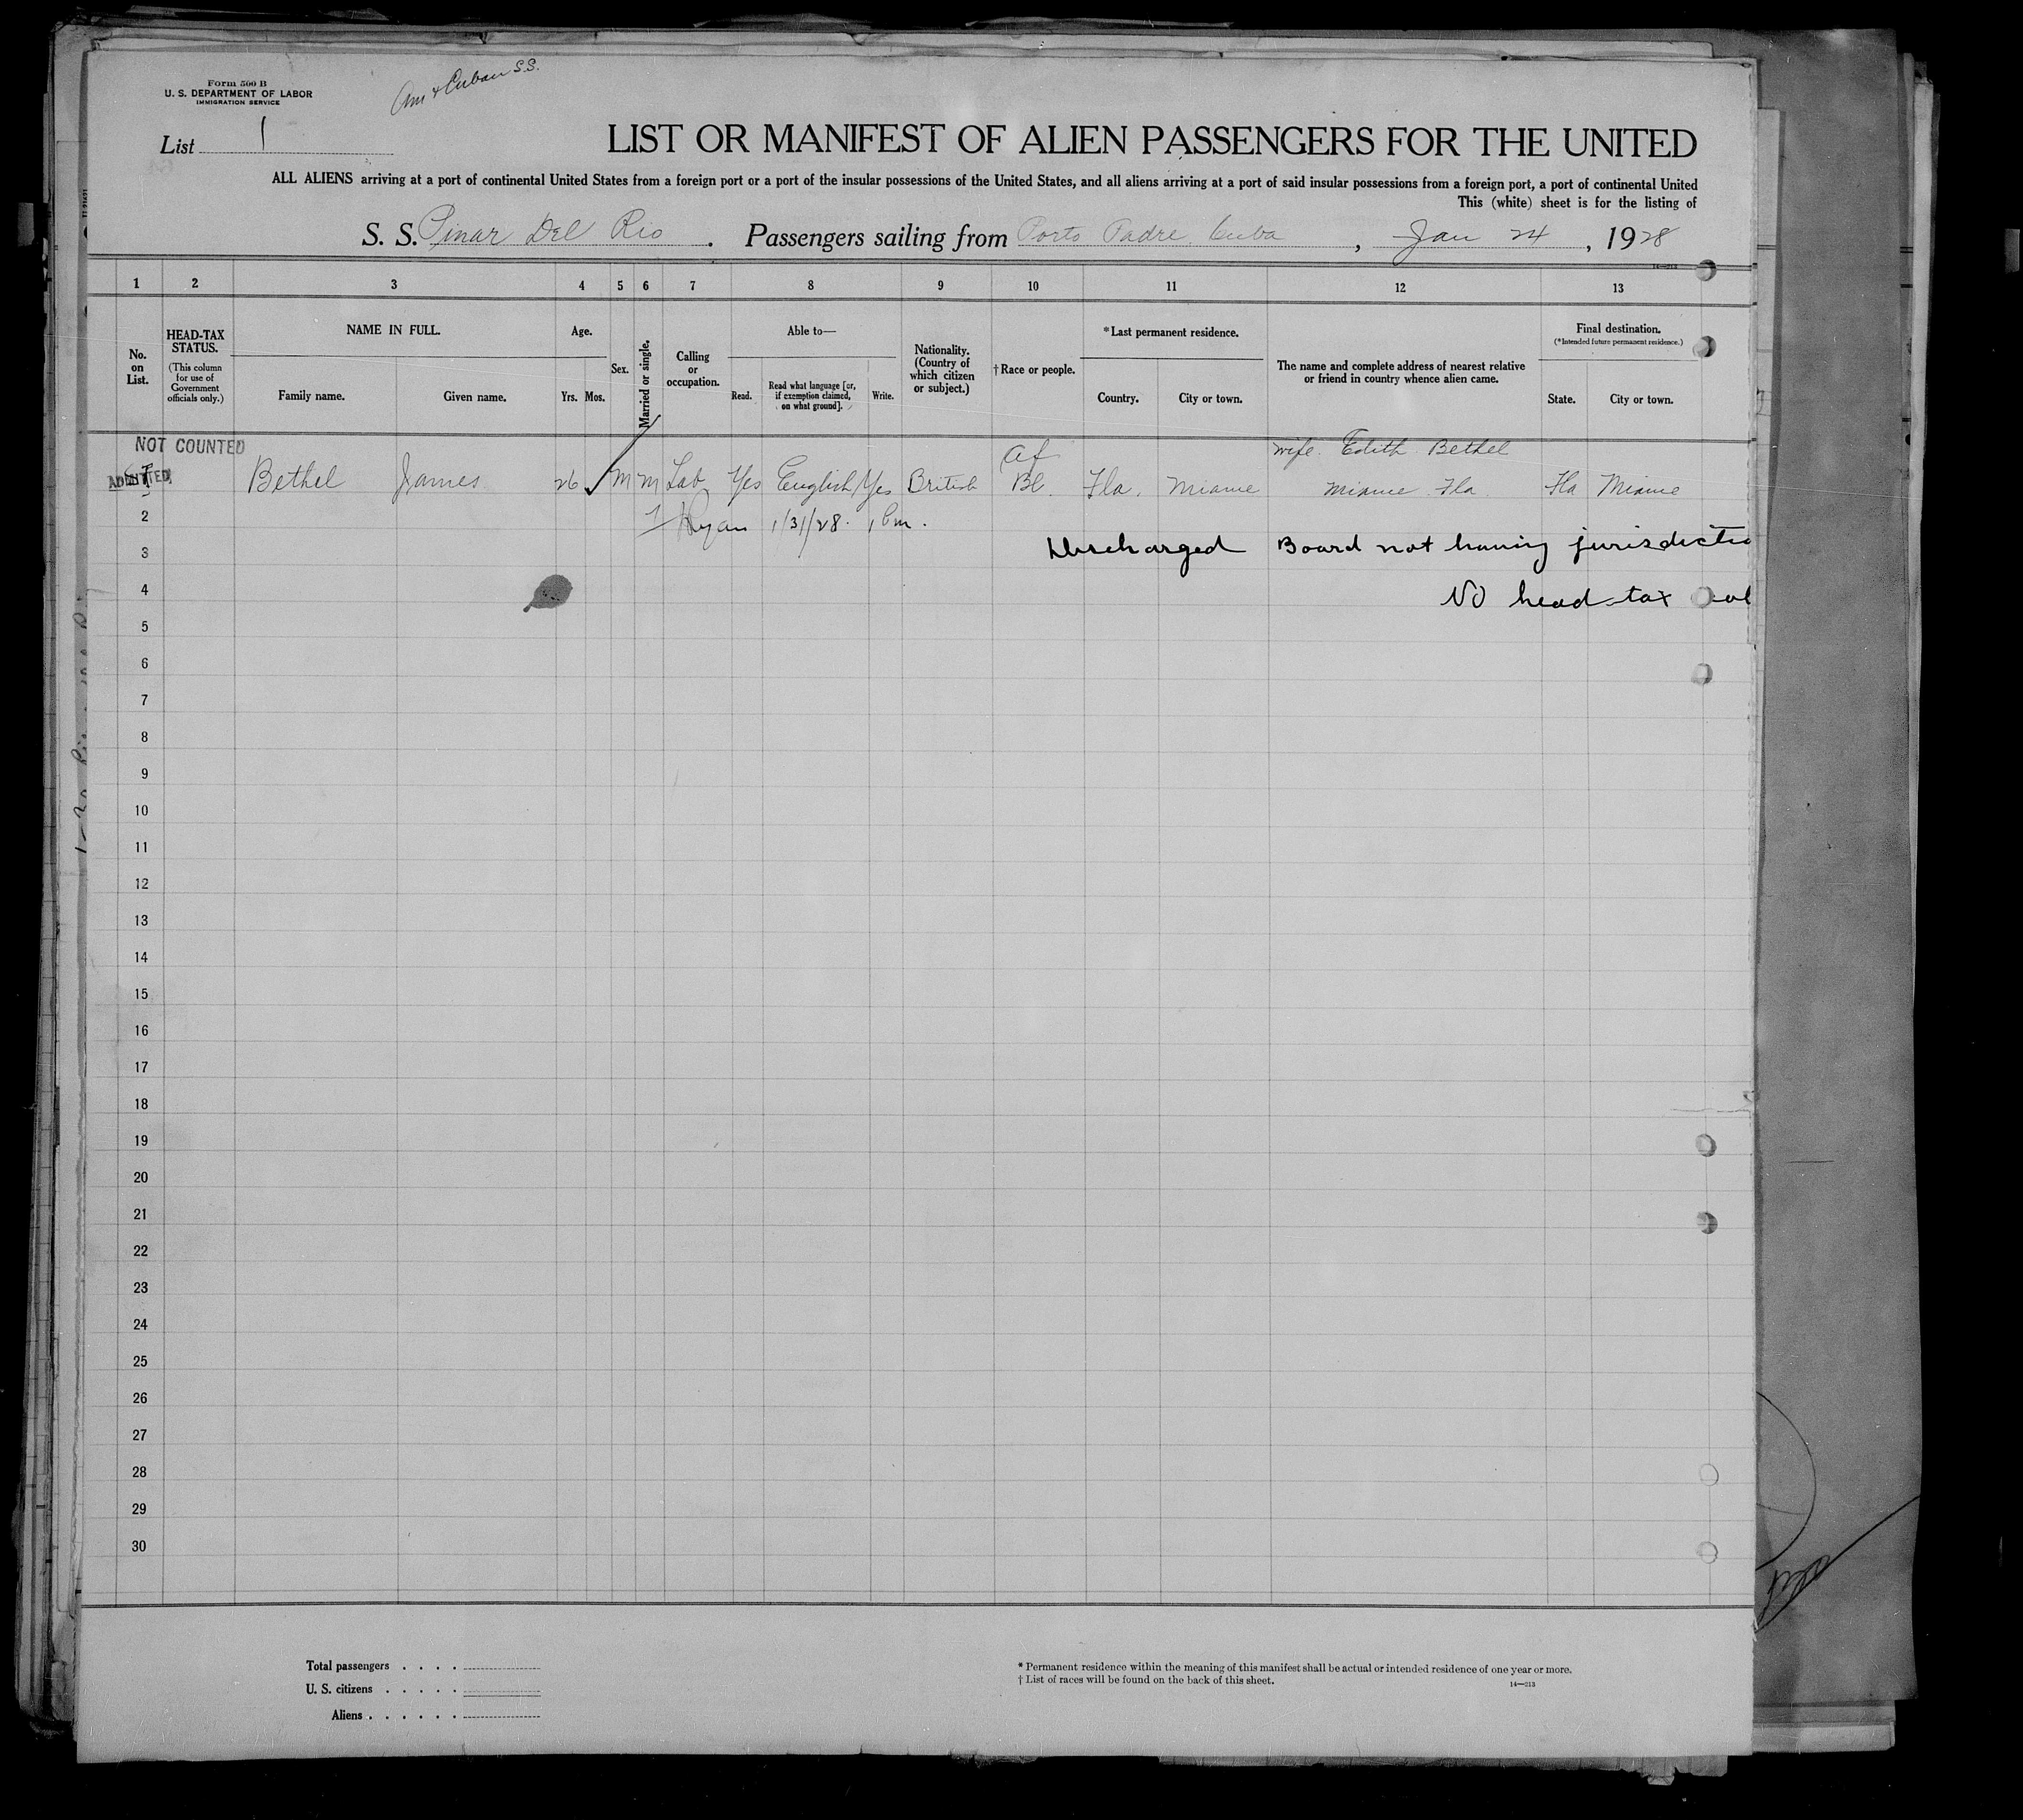 Form 500 B
U. S. DEPARTMENT OF LABOR
IMMIGRATION SERVICE
Am & Cuban S.S.
List 1
LIST OR MANIFEST OF ALIEN PASSENGERS FOR THE UNITED
ALL ALIENS arriving at a port of continental United States from a foreign port or a port of the insular possessions of the United States, and all aliens arriving at a port of said insular possessions from a foreign port, a port of continental United
This (white) sheet is for the listing of
S. S. Pinar Del Rio . Passengers sailing from Porto Padre, Cuba , Jan 24 , 1928
14—213
1 2 3 4 5 6 7 8 9 10 11 12 13
No. on List.
HEAD-TAX STATUS.
(This column for use of Government officials only.)
NAME IN FULL.
Family name. Given name.
Age.
Yrs. Mos.
Sex.
Married or single.
Calling or occupation.
Able to—
Read. Read what language [or, if exemption claimed, on what ground]. Write.
Nationality. (Country of which citizen or subject.)
†Race or people.
*Last permanent residence.
Country. City or town.
The name and complete address of nearest relative or friend in country whence alien came.
Final destination.
(*Intended future permanent residence.)
State. City or town.
NOT COUNTED
Af wife Edith Bethel
ADMITTED Bethel James 26 M M Lab Yes English Yes British Bl. Fla. Miame Miame Fla. Fla Miame
2 Ryan 1/31/28. 1 Pm.
3 Discharged Board not having jurisdictio
4 No head tax
5
6
7
8
9
10
11
12
13
14
15
16
17
18
19
20
21
22
23
24
25
26
27
28
29
30
Total passengers . . . .
U. S. citizens . . . . .
Aliens . . . . . .
* Permanent residence within the meaning of this manifest shall be actual or intended residence of one year or more.
† List of races will be found on the back of this sheet.
14—213